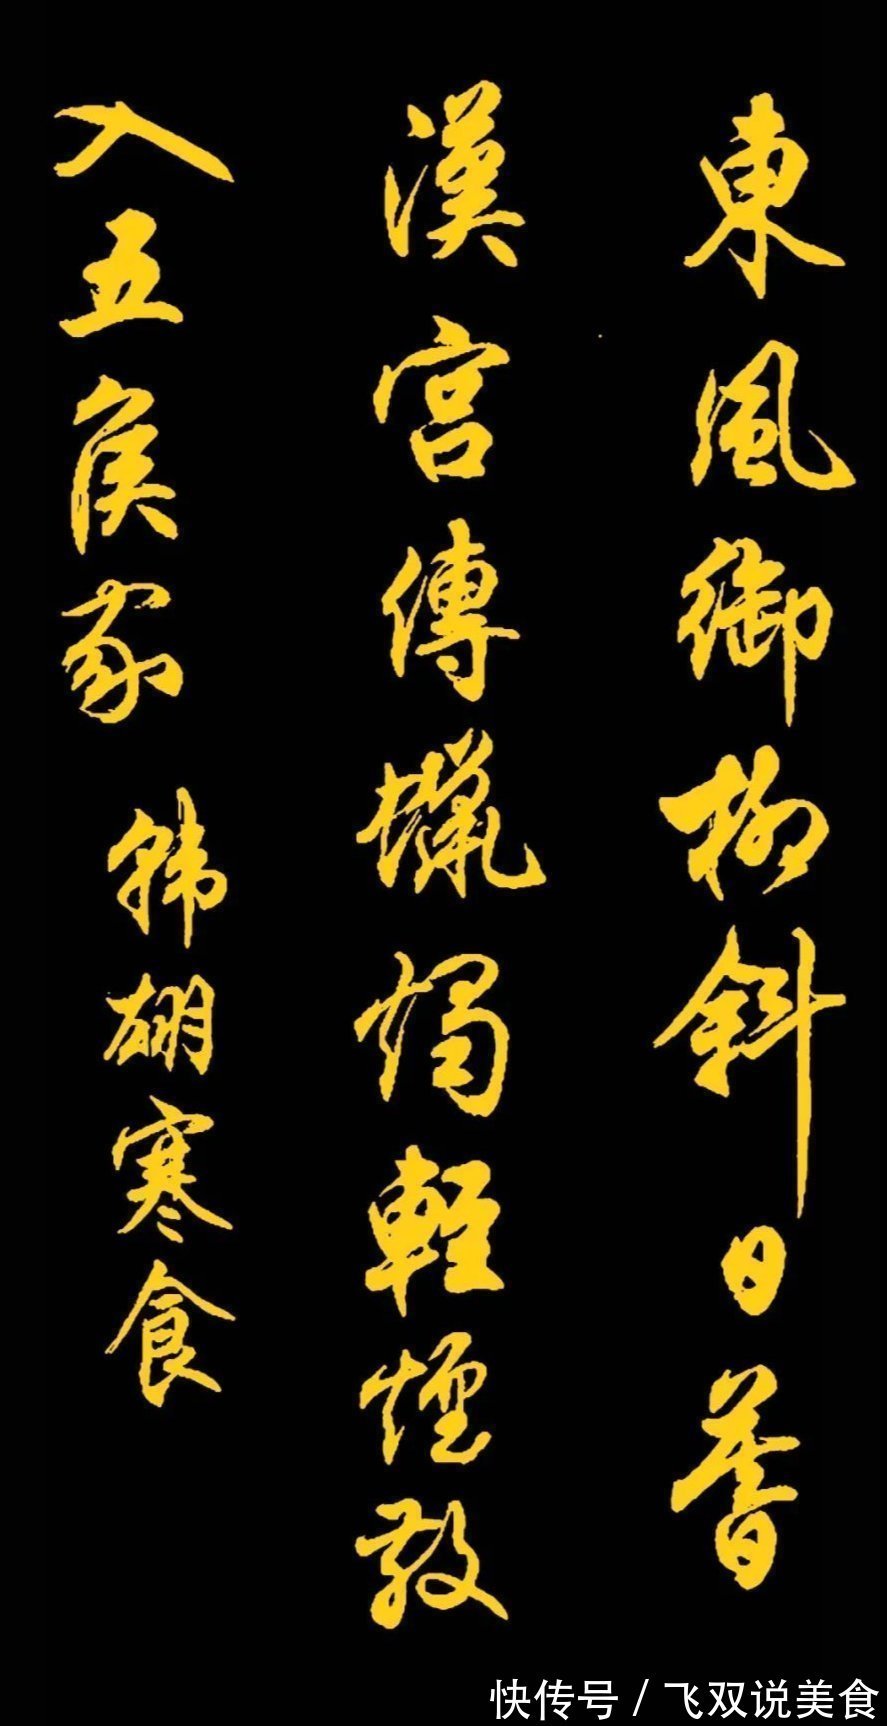 東風御柳斜日暮
漢宮傳蠟燭輕煙散
入五侯家 韩翃寒食
快传号 / 飞双说美食